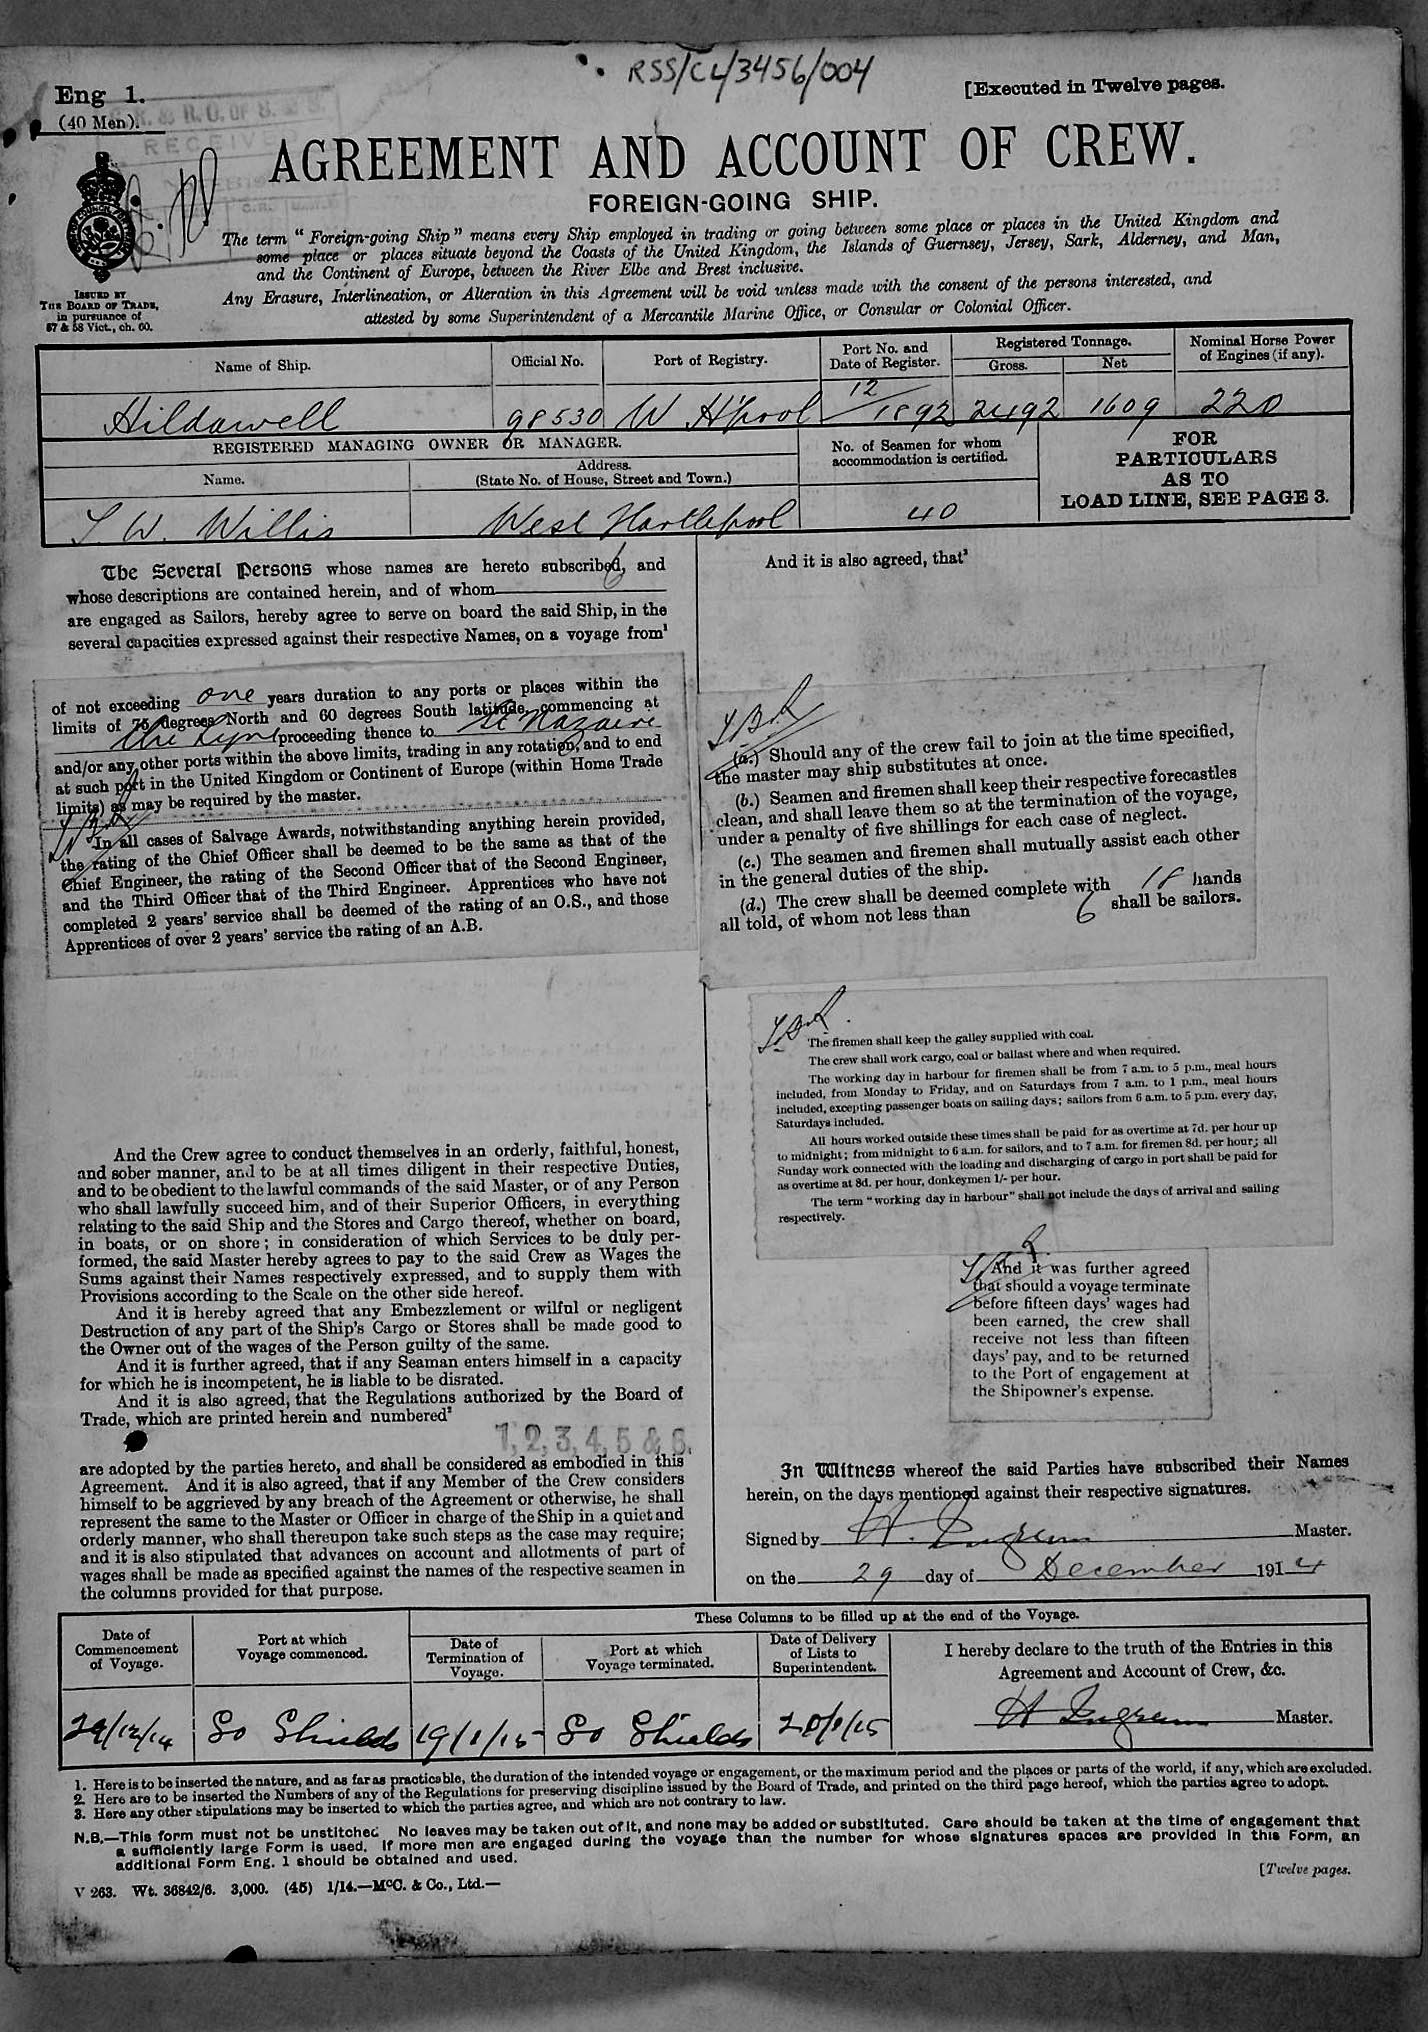 RSS/CL/3456/004
Eng 1.
[Executed in Twelve pages.
(40 Men).
RECEIVED
AGREEMENT AND ACCOUNT OF CREW.
FOREIGN-GOING SHIP.
The term "Foreign-going Ship" means every Ship employed in trading or going between some place or places in the United Kingdom and
some place or places situate beyond the Coasts of the United Kingdom, the Islands of Guernsey, Jersey, Sark, Alderney, and Man,
and the Continent of Europe, between the River Elbe and Brest inclusive.
Any Erasure, Interlineation, or Alteration in this Agreement will be void unless made with the consent of the persons interested, and
attested by some Superintendent of a Mercantile Marine Office, or Consular or Colonial Officer.
ISSUED BY
THE BOARD OF TRADE,
in pursuance of
57 & 58 Vict., ch. 60.
Name of Ship.
Official No.
Port of Registry.
Port No. and
Date of Register.
Registered Tonnage.
Gross.
Net
Nominal Horse Power
of Engines (if any).
Hildawell
98530
W H'pool
12/1892
2492
1609
220
REGISTERED MANAGING OWNER OR MANAGER.
Name.
Address.
(State No. of House, Street and Town.)
No. of Seamen for whom
accommodation is certified.
FOR
PARTICULARS
AS TO
LOAD LINE, SEE PAGE 3.
W. Willis
West Hartlepool
40
The Several Persons whose names are hereto subscribed, and
whose descriptions are contained herein, and of whom 6
are engaged as Sailors, hereby agree to serve on board the said Ship, in the
several capacities expressed against their respective Names, on a voyage from¹
of not exceeding one years duration to any ports or places within the
limits of 75 degrees North and 60 degrees South latitude, commencing at
the Tyne proceeding thence to St Nazaire
and/or any other ports within the above limits, trading in any rotation, and to end
at such port in the United Kingdom or Continent of Europe (within Home Trade
limits) as may be required by the master.
In all cases of Salvage Awards, notwithstanding anything herein provided,
the rating of the Chief Officer shall be deemed to be the same as that of the
Chief Engineer, the rating of the Second Officer that of the Second Engineer,
and the Third Officer that of the Third Engineer. Apprentices who have not
completed 2 years' service shall be deemed of the rating of an O.S., and those
Apprentices of over 2 years' service the rating of an A.B.
And the Crew agree to conduct themselves in an orderly, faithful, honest,
and sober manner, and to be at all times diligent in their respective Duties,
and to be obedient to the lawful commands of the said Master, or of any Person
who shall lawfully succeed him, and of their Superior Officers, in everything
relating to the said Ship and the Stores and Cargo thereof, whether on board,
in boats, or on shore; in consideration of which Services to be duly per-
formed, the said Master hereby agrees to pay to the said Crew as Wages the
Sums against their Names respectively expressed, and to supply them with
Provisions according to the Scale on the other side hereof.
And it is hereby agreed that any Embezzlement or wilful or negligent
Destruction of any part of the Ship's Cargo or Stores shall be made good to
the Owner out of the wages of the Person guilty of the same.
And it is further agreed, that if any Seaman enters himself in a capacity
for which he is incompetent, he is liable to be disrated.
And it is also agreed, that the Regulations authorized by the Board of
Trade, which are printed herein and numbered²
1, 2, 3, 4, 5 & 6.
are adopted by the parties hereto, and shall be considered as embodied in this
Agreement. And it is also agreed, that if any Member of the Crew considers
himself to be aggrieved by any breach of the Agreement or otherwise, he shall
represent the same to the Master or Officer in charge of the Ship in a quiet and
orderly manner, who shall thereupon take such steps as the case may require;
and it is also stipulated that advances on account and allotments of part of
wages shall be made as specified against the names of the respective seamen in
the columns provided for that purpose.
And it is also agreed, that³
(a.) Should any of the crew fail to join at the time specified,
the master may ship substitutes at once.
(b.) Seamen and firemen shall keep their respective forecastles
clean, and shall leave them so at the termination of the voyage,
under a penalty of five shillings for each case of neglect.
(c.) The seamen and firemen shall mutually assist each other
in the general duties of the ship.
(d.) The crew shall be deemed complete with 18 hands
all told, of whom not less than 6 shall be sailors.
The firemen shall keep the galley supplied with coal.
The crew shall work cargo, coal or ballast where and when required.
The working day in harbour for firemen shall be from 7 a.m. to 5 p.m., meal hours
included, from Monday to Friday, and on Saturdays from 7 a.m. to 1 p.m., meal hours
included, excepting passenger boats on sailing days; sailors from 6 a.m. to 5 p.m. every day,
Saturdays included.
All hours worked outside these times shall be paid for as overtime at 7d. per hour up
to midnight; from midnight to 6 a.m. for sailors, and to 7 a.m. for firemen 8d. per hour; all
Sunday work connected with the loading and discharging of cargo in port shall be paid for
as overtime at 8d. per hour, donkeymen 1/- per hour.
The term "working day in harbour" shall not include the days of arrival and sailing
respectively.
And it was further agreed
that should a voyage terminate
before fifteen days' wages had
been earned, the crew shall
receive not less than fifteen
days' pay, and to be returned
to the Port of engagement at
the Shipowner's expense.
In Witness whereof the said Parties have subscribed their Names
herein, on the days mentioned against their respective signatures.
Signed by H. Ingram Master.
on the 29 day of December 1914
These Columns to be filled up at the end of the Voyage.
Date of
Commencement
of Voyage.
Port at which
Voyage commenced.
Date of
Termination of
Voyage.
Port at which
Voyage terminated.
Date of Delivery
of Lists to
Superintendent.
I hereby declare to the truth of the Entries in this
Agreement and Account of Crew, &c.
29/12/14
So Shields
19/1/15
So Shields
20/1/15
H Ingram Master.
1. Here is to be inserted the nature, and as far as practicable, the duration of the intended voyage or engagement, or the maximum period and the places or parts of the world, if any, which are excluded.
2. Here are to be inserted the Numbers of any of the Regulations for preserving discipline issued by the Board of Trade, and printed on the third page hereof, which the parties agree to adopt.
3. Here any other stipulations may be inserted to which the parties agree, and which are not contrary to law.
N.B.—This form must not be unstitched. No leaves may be taken out of it, and none may be added or substituted. Care should be taken at the time of engagement that
a sufficiently large Form is used. If more men are engaged during the voyage than the number for whose signatures spaces are provided in this Form, an
additional Form Eng. 1 should be obtained and used.
[Twelve pages.
V 263. Wt. 36842/6. 3,000. (45) 1/14.—McC. & Co., Ltd.—